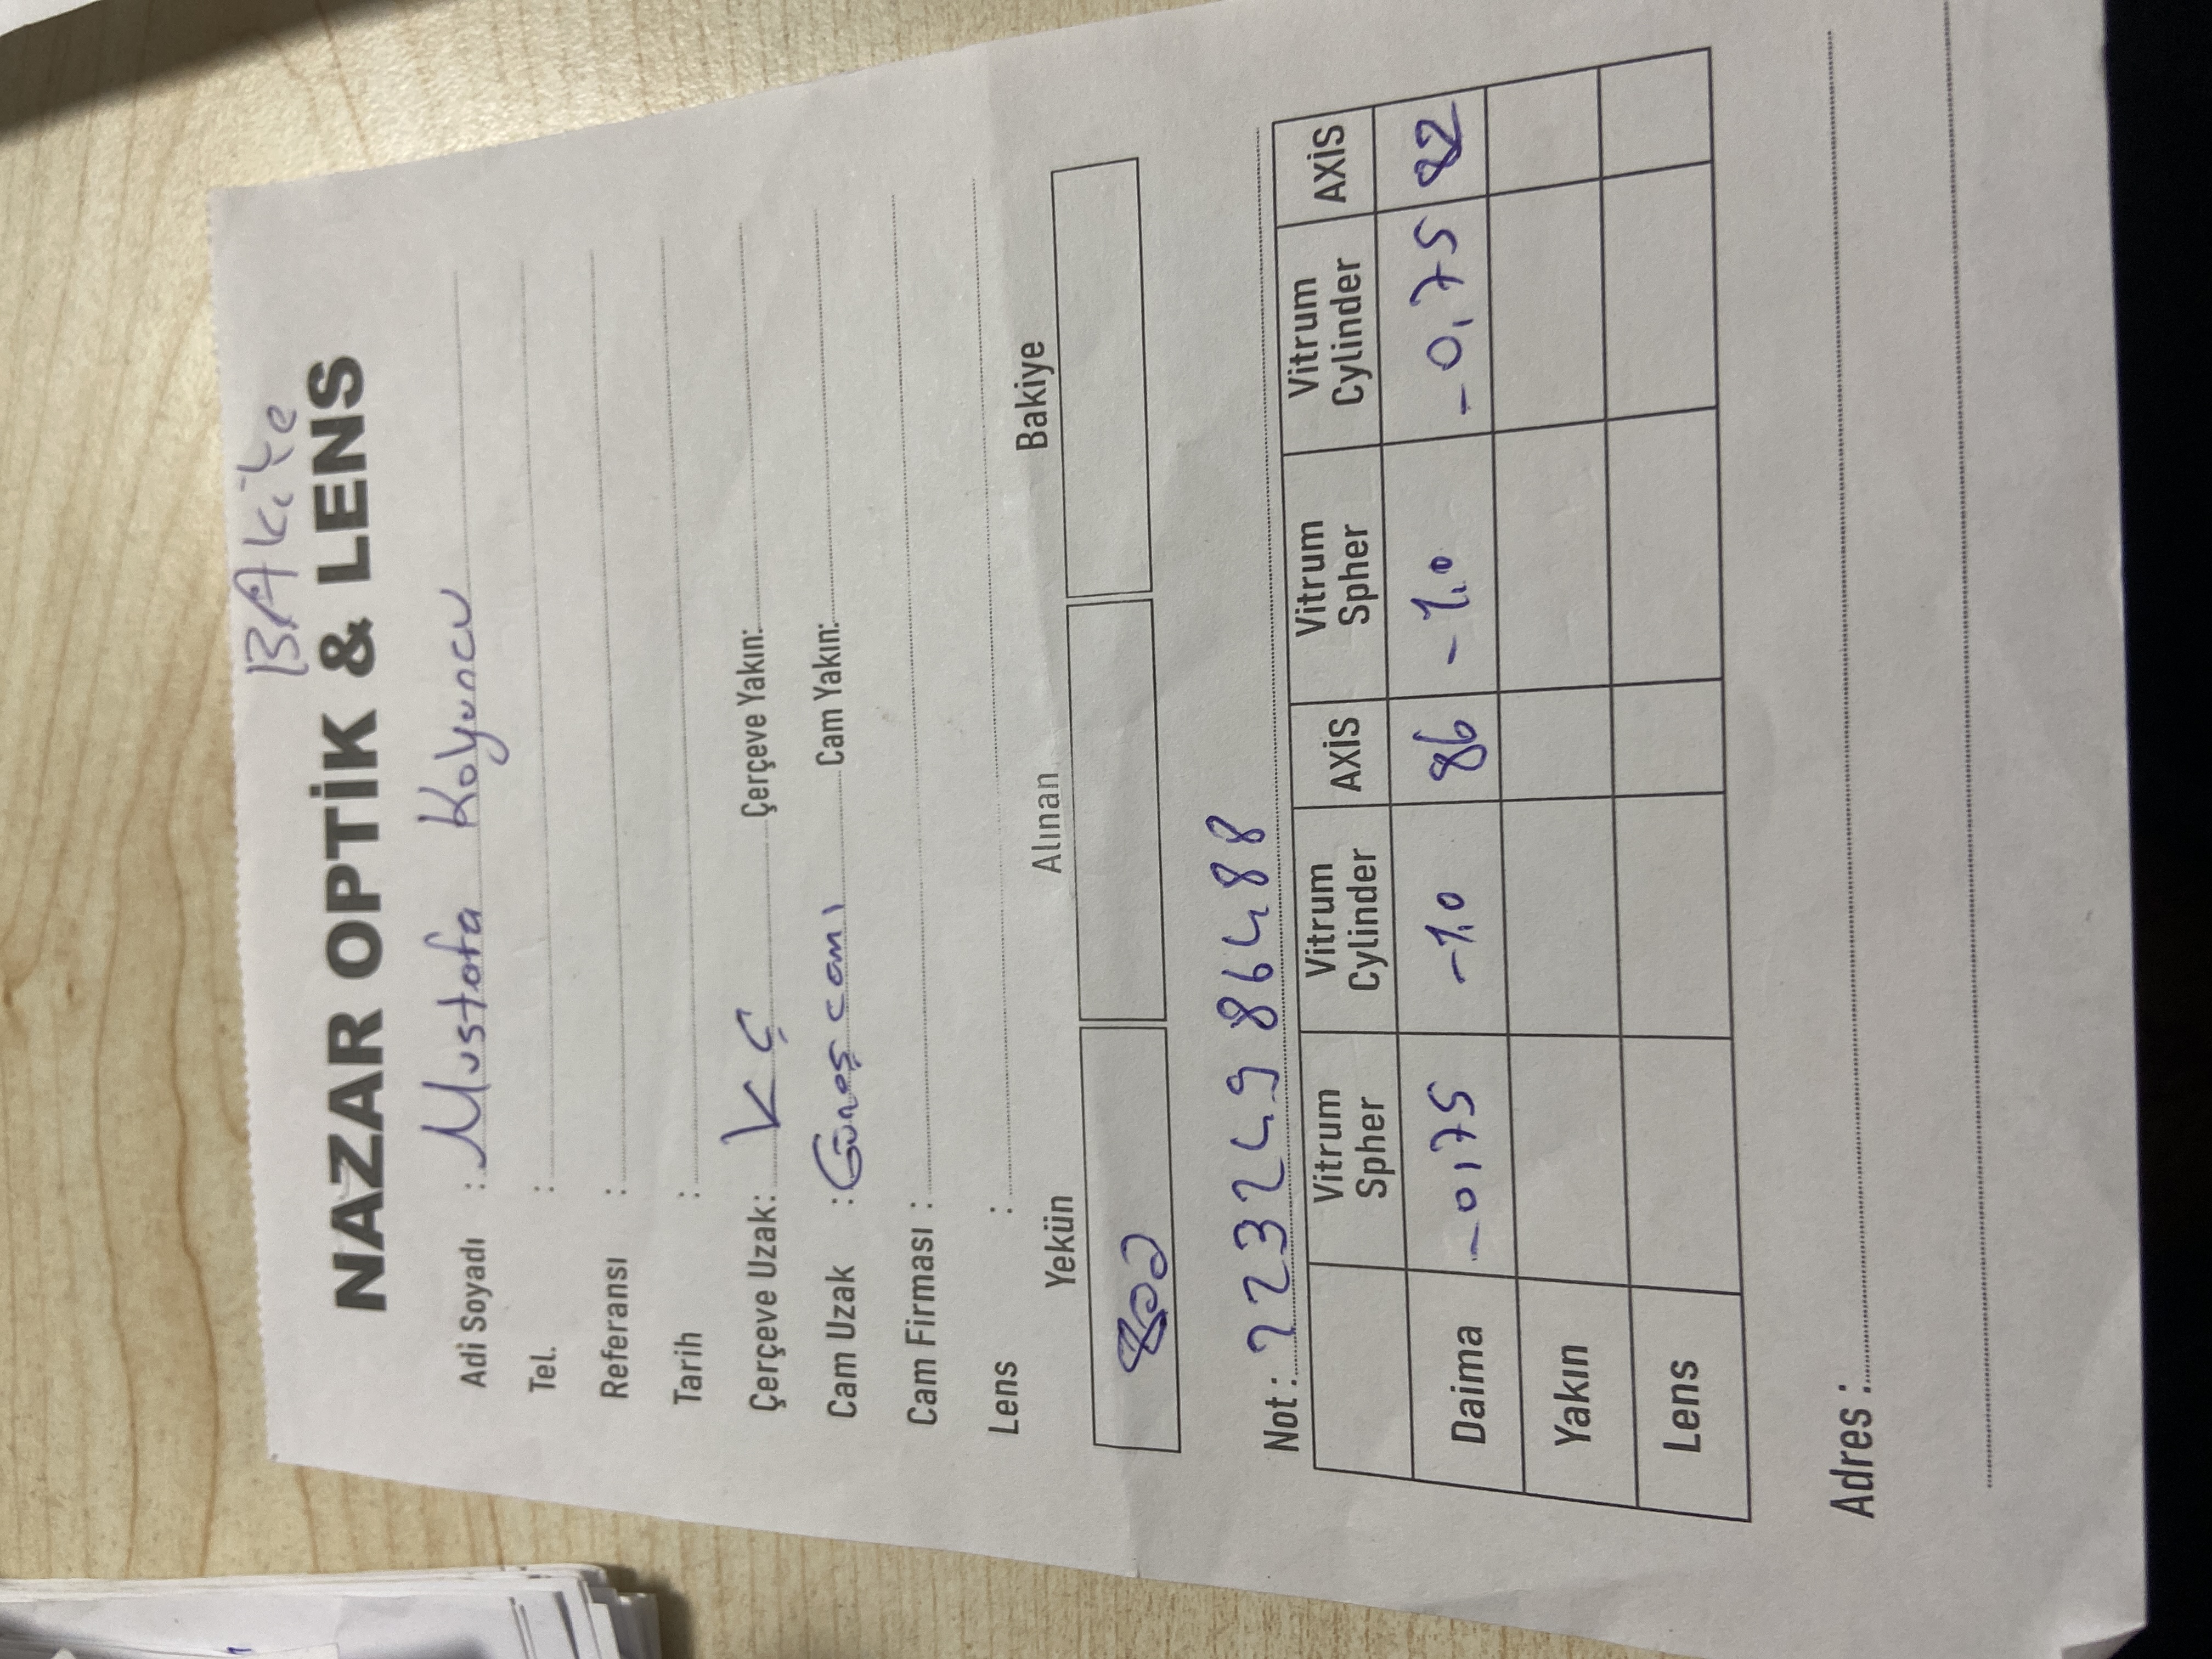 BAkiye
NAZAR OPTİK & LENS
Adi Soyadı : Mustafa Koyuncu
Tel. :
Referansı :
Tarih :
Çerçeve Uzak: KÇ Çerçeve Yakın:
Cam Uzak : Güneş camı Cam Yakın:
Cam Firması :
Lens :
Yekün Alınan Bakiye
800
Not : 22324986488
Vitrum Spher Vitrum Cylinder AXİS Vitrum Spher Vitrum Cylinder AXİS
Daima -0,75 -1,0 86 -1,0 -0,75 82
Yakın
Lens
Adres :